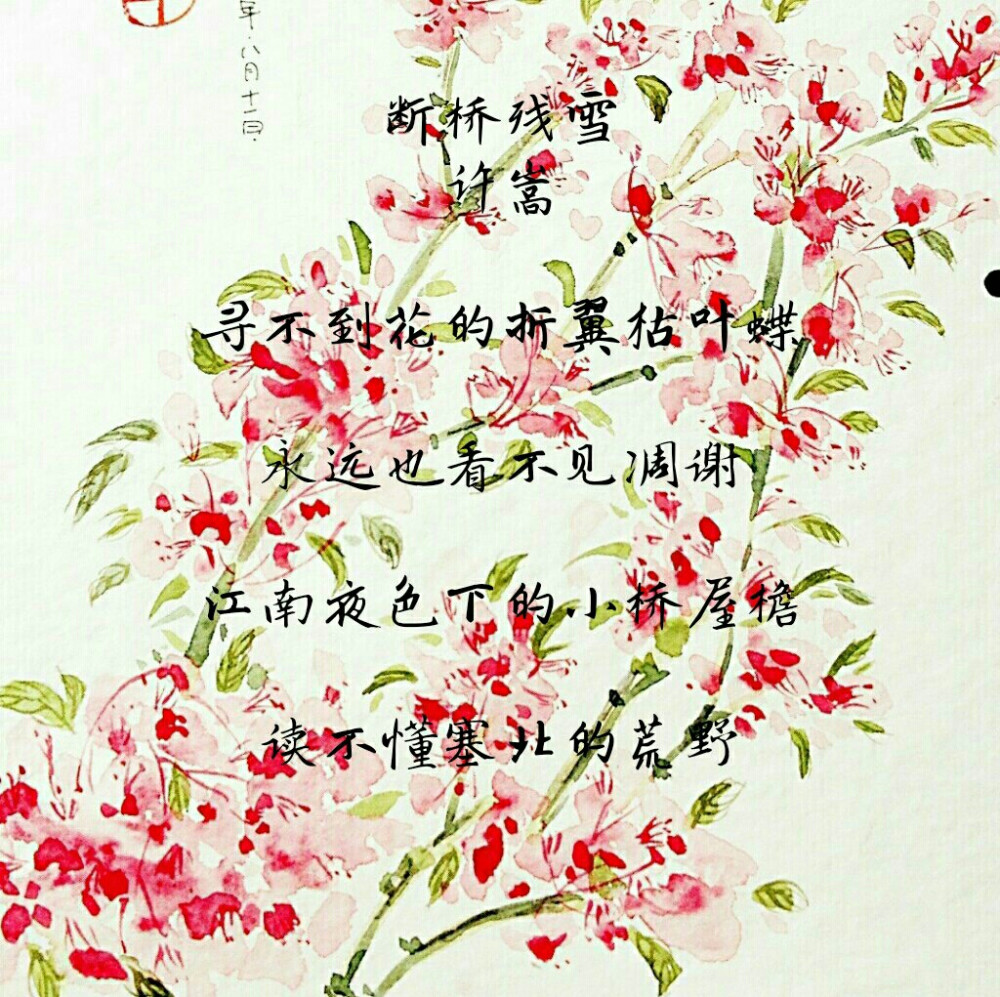 年·八月十一日·
断桥残雪
许嵩
寻不到花的折翼枯叶蝶
永远也看不见凋谢
江南夜色下的小桥屋檐
读不懂塞北的荒野